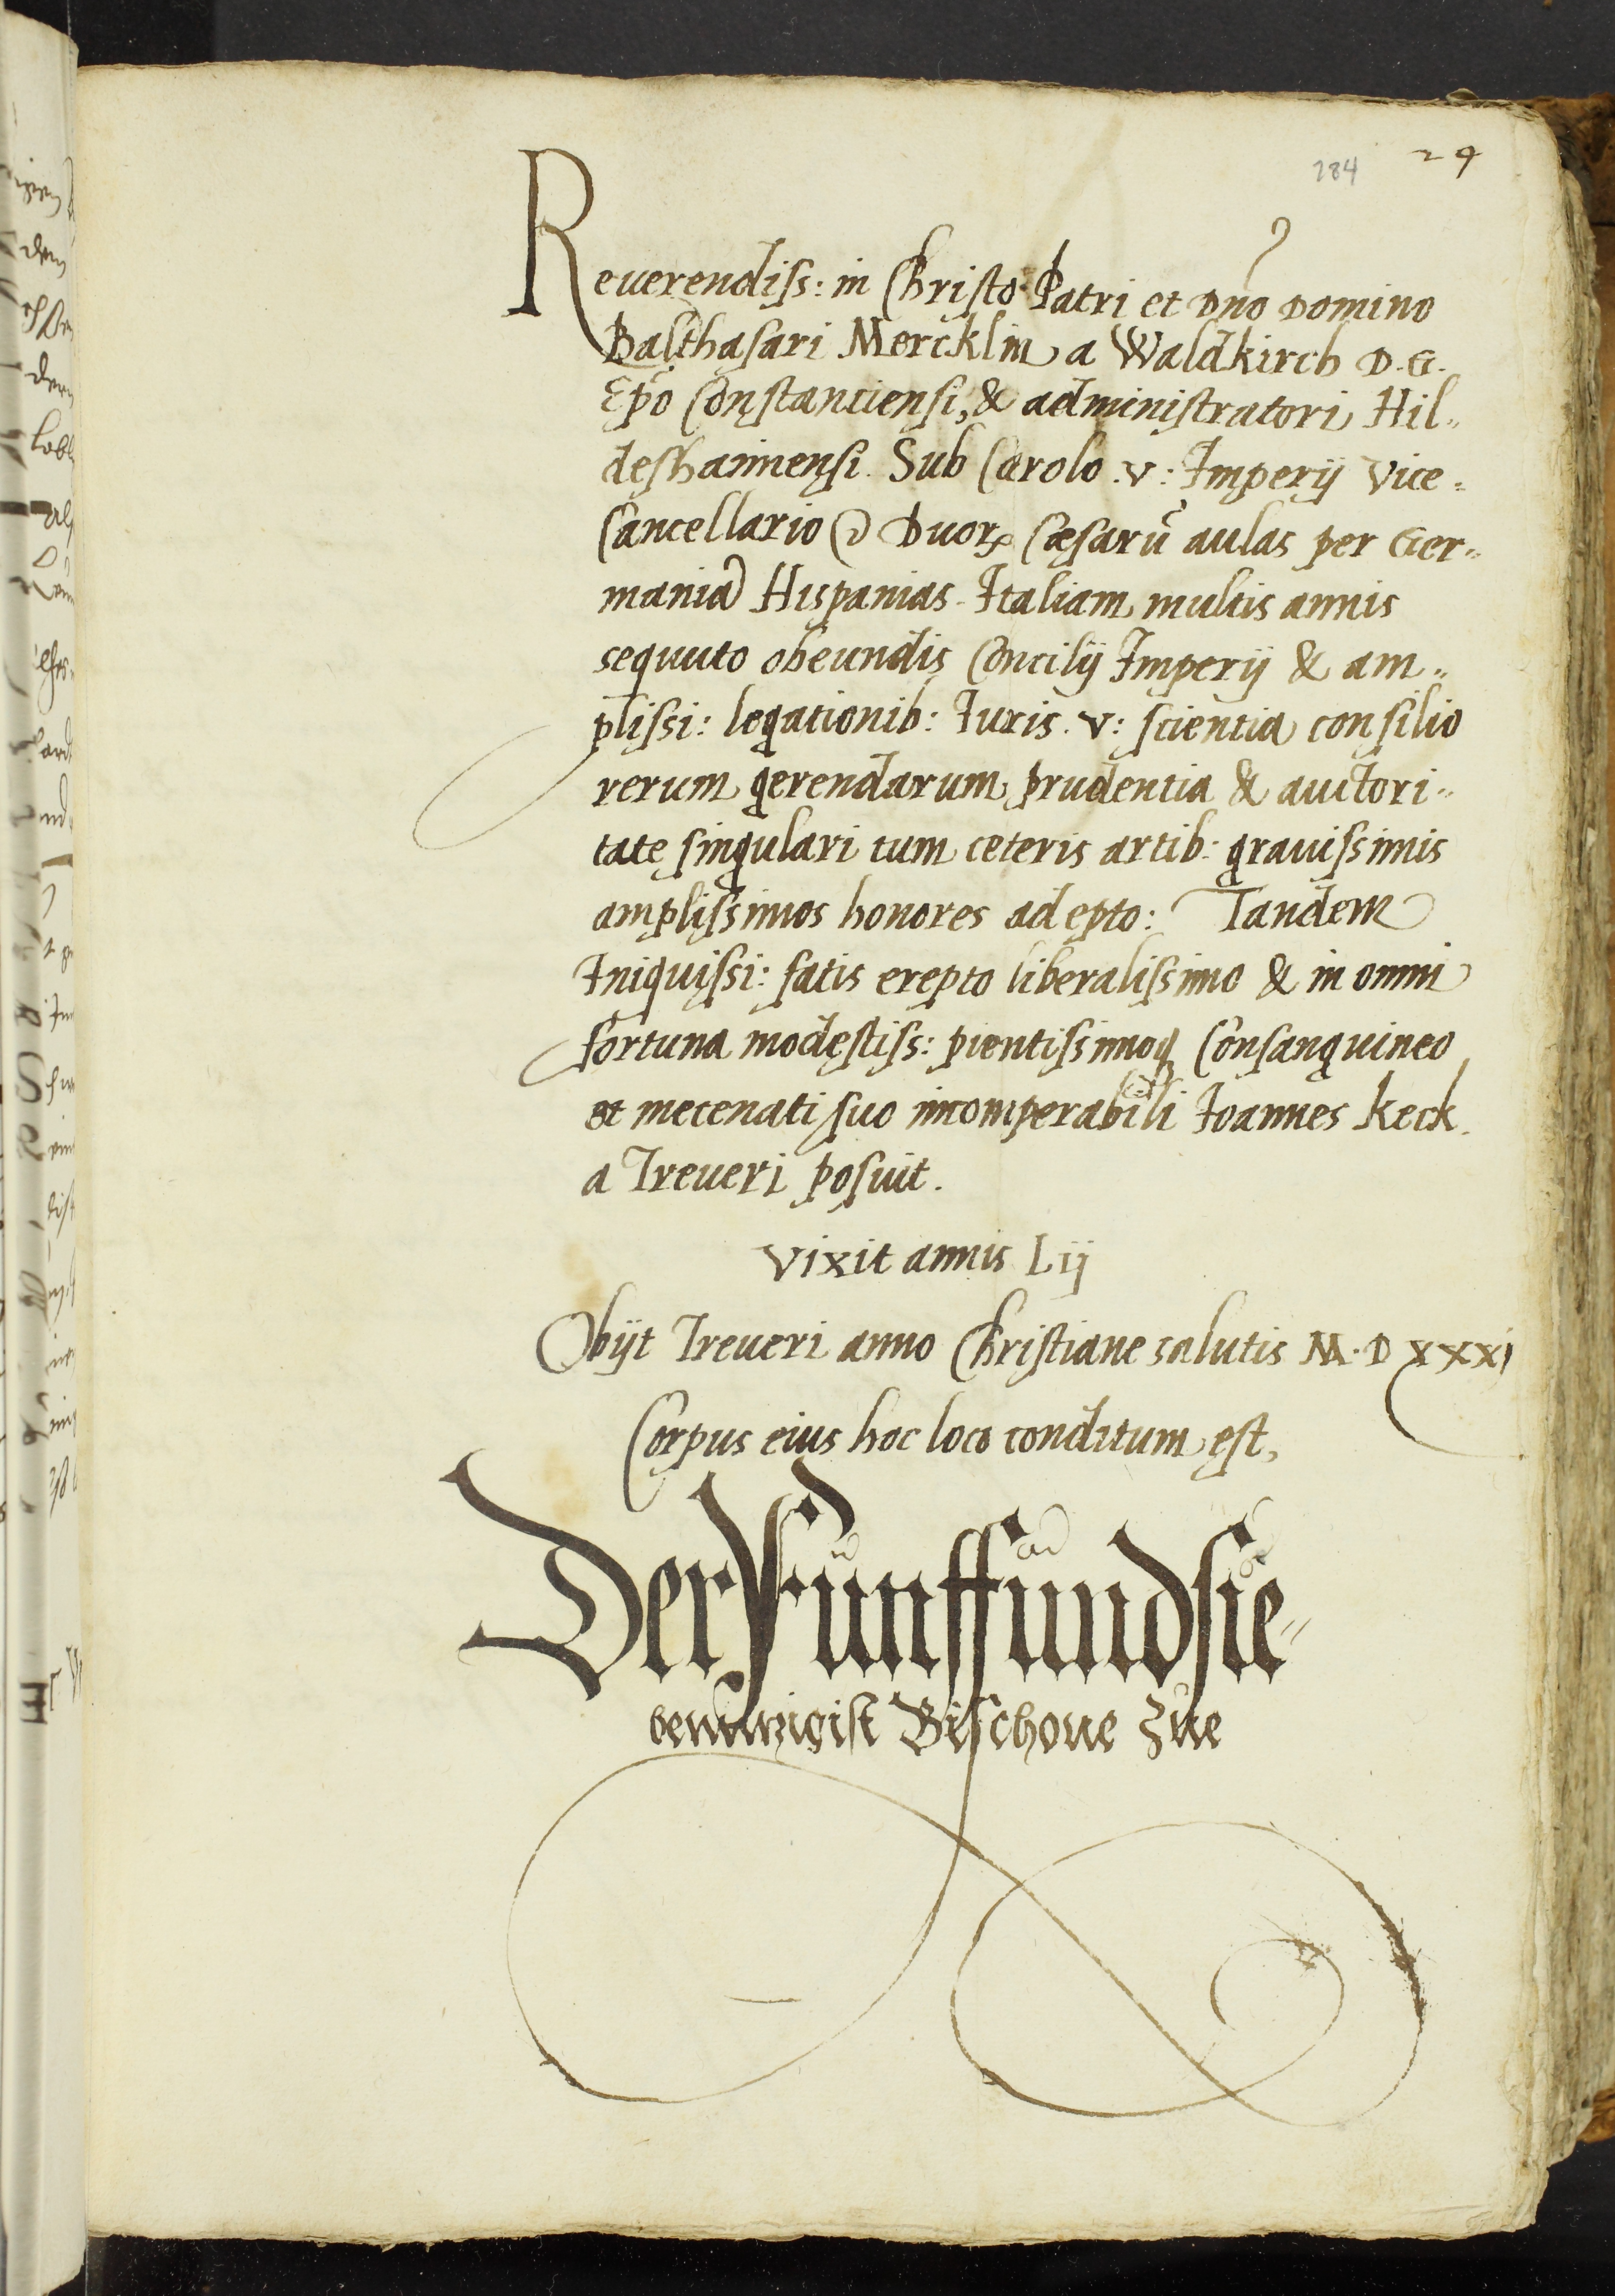 284 29
Reuerendiss: in Christo Patri et Dn̄o Domino
Balthasari Mercklin a Waldkirch D.G.
Ep̄o Constanciensi, & administratori Hil„
deshaimensi. Sub Carolo .v: Imperij Vice=
Cancellario Duorꝝ Cæsarū aulas per Ger„
mania Hispanias Italiam multis annis
sequuto obeundis Concilij Imperij & am„
plissi: legationib: Iuris .v: scientia consilio
rerum gerendarum prudentia & auctori„
tate singulari tum ceteris artib: grauissimis
amplissimos honores adepto: Tandem
Iniquissi: fatis erepto liberalissimo & in omni
fortuna modestiss: pientissimoq Consanguineo
et mecenati suo incomperabili Ioannes Keck
a Treueri posuit.
Vixit annis Lij
Obijt Treueri anno Christiane salutis M.D XXXj
Corpus eius hoc loco conditum est,
Der Fünffundsie-
benntzigist Bischoue Zue